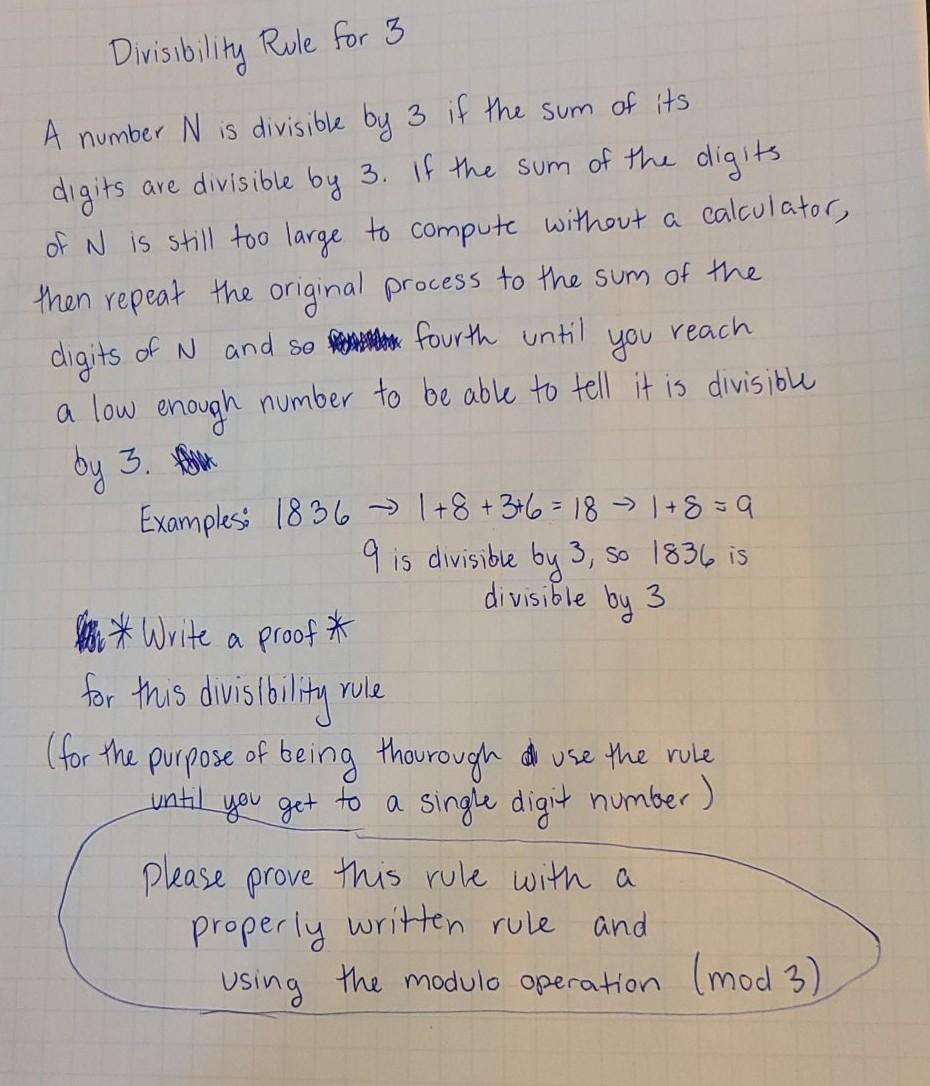 Divisibility Rule for 3
A number N is divisible by 3 if the sum of its
digits are divisible by 3. If the sum of the digits
of N is still too large to compute without a calculator,
then repeat the original process to the sum of the
digits of N and so fourth until you reach
a low enough number to be able to tell it is divisible
by 3.
Examples: 1836 → 1+8+3+6 = 18 → 1+8 = 9
9 is divisible by 3, so 1836 is
divisible by 3
* Write a proof *
for this divisibility rule
(for the purpose of being thourough use the rule
until you get to a single digit number)
please prove this rule with a
properly written rule and
using the modulo operation (mod 3)